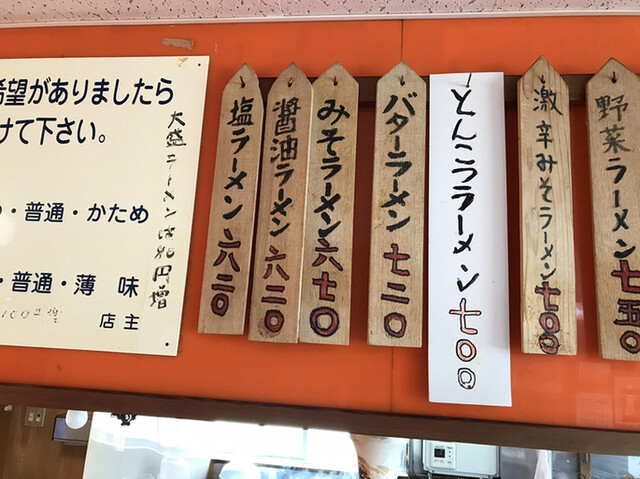 希望がありましたら
けて下さい。
・普通・かため
・普通・薄 味
店主
塩ラーメン 六八二〇
醤油ラーメン 六八二〇
みそラーメン 六七〇
バターラーメン 七二〇
とんこラーメン 七〇〇
激辛みそラーメン 七〇〇
野菜ラーメン 七五〇